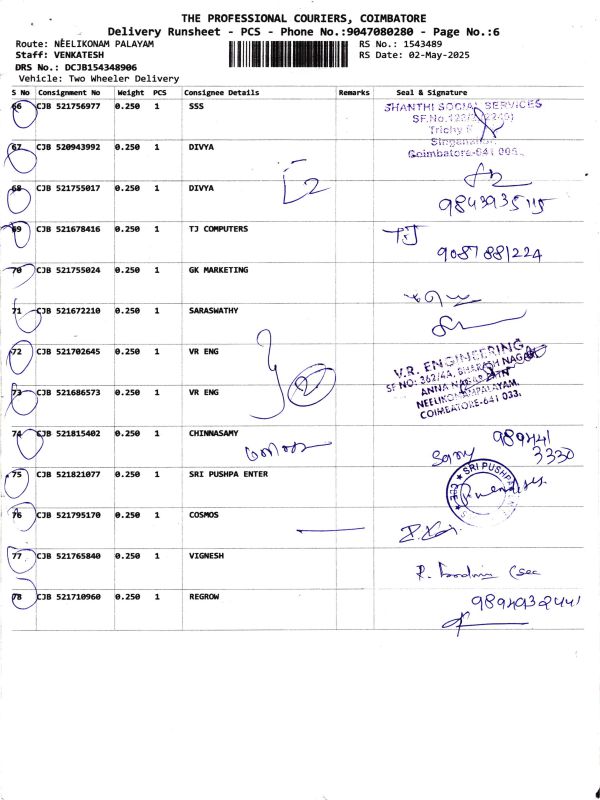 THE PROFESSIONAL COURIERS, COIMBATORE
Delivery Runsheet - PCS - Phone No.:9047080280 - Page No.:6
Route: NEELIKONAM PALAYAM RS No.: 1543489
Staff: VENKATESH RS Date: 02-May-2025
DRS No.: DCJB154348906
Vehicle: Two Wheeler Delivery
S No Consignment No Weight PCS Consignee Details Remarks Seal & Signature
66 CJB 521756977 0.250 1 SSS
SHANTHI SOCIAL SERVICES
SF.No.
Trichy
Singanallur
Coimbatore-641 005.
67 CJB 520943992 0.250 1 DIVYA
68 CJB 521755017 0.250 1 DIVYA
69 CJB 521678416 0.250 1 TJ COMPUTERS TJ
9087881224
70 CJB 521755024 0.250 1 GK MARKETING
71 CJB 521672210 0.250 1 SARASWATHY
72 CJB 521702645 0.250 1 VR ENG
V.R. ENGINEERING
SF NO: 362/4A, BHARATH NAGAR
ANNA NAGAR
NEELIKONAMPALAYAM,
COIMBATORE-641 033.
73 CJB 521686573 0.250 1 VR ENG
74 CJB 521815402 0.250 1 CHINNASAMY
3330
75 CJB 521821077 0.250 1 SRI PUSHPA ENTER
SRI PUSHPA
76 CJB 521795170 0.250 1 COSMOS
77 CJB 521765840 0.250 1 VIGNESH
78 CJB 521710960 0.250 1 REGROW